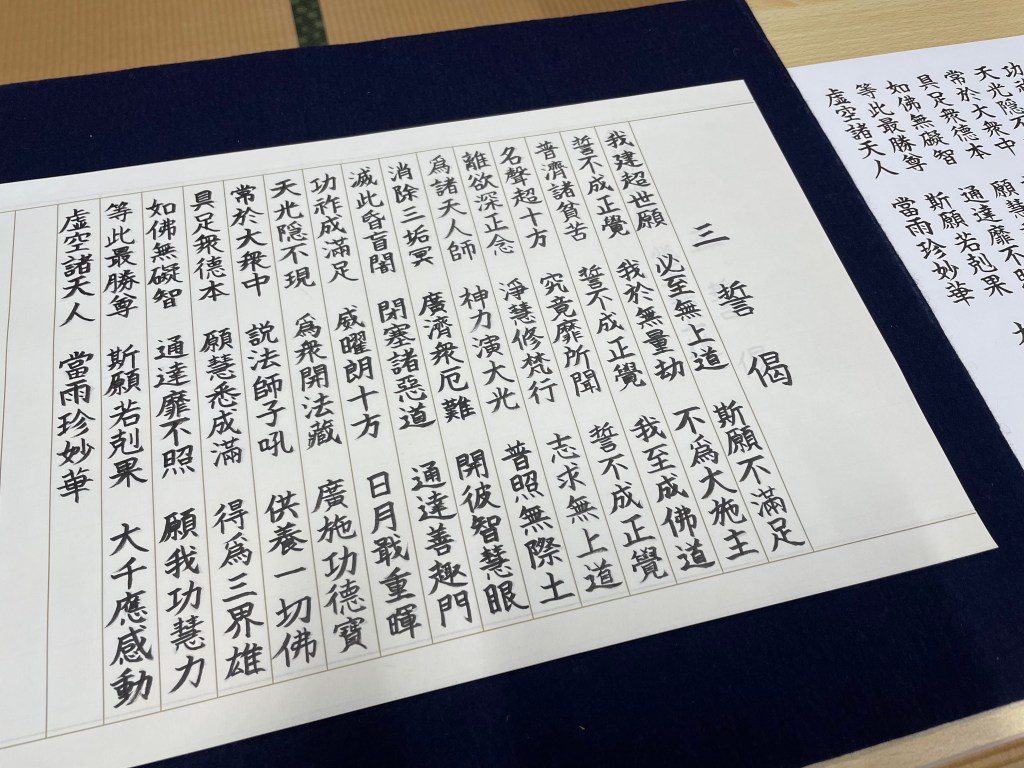 三誓偈
我建超世願 必至無上道 斯願不滿足
誓不成正覺 我於無量劫 不爲大施主
普濟諸貧苦 誓不成正覺 我至成佛道
名聲超十方 究竟靡所聞 誓不成正覺
離欲深正念 淨慧修梵行 志求無上道
爲諸天人師 神力演大光 普照無際土
消除三垢冥 廣濟衆厄難 開彼智慧眼
滅此昏盲闇 閉塞諸惡道 通達善趣門
功祚成滿足 威曜朗十方 日月戢重暉
天光隱不現 爲衆開法藏 廣施功德寶
常於大衆中 説法師子吼 供養一切佛
具足衆德本 願慧悉成滿 得爲三界雄
如佛無礙智 通達靡不照 願我功慧力
等此最勝尊 斯願若剋果 大千應感動
虛空諸天人 當雨珍妙華
功
天光隱不
常於大衆中
具足衆德本 願慧
如佛無礙智 通達靡不照
等此最勝尊 斯願若剋果
虛空諸天人 當雨珍妙華